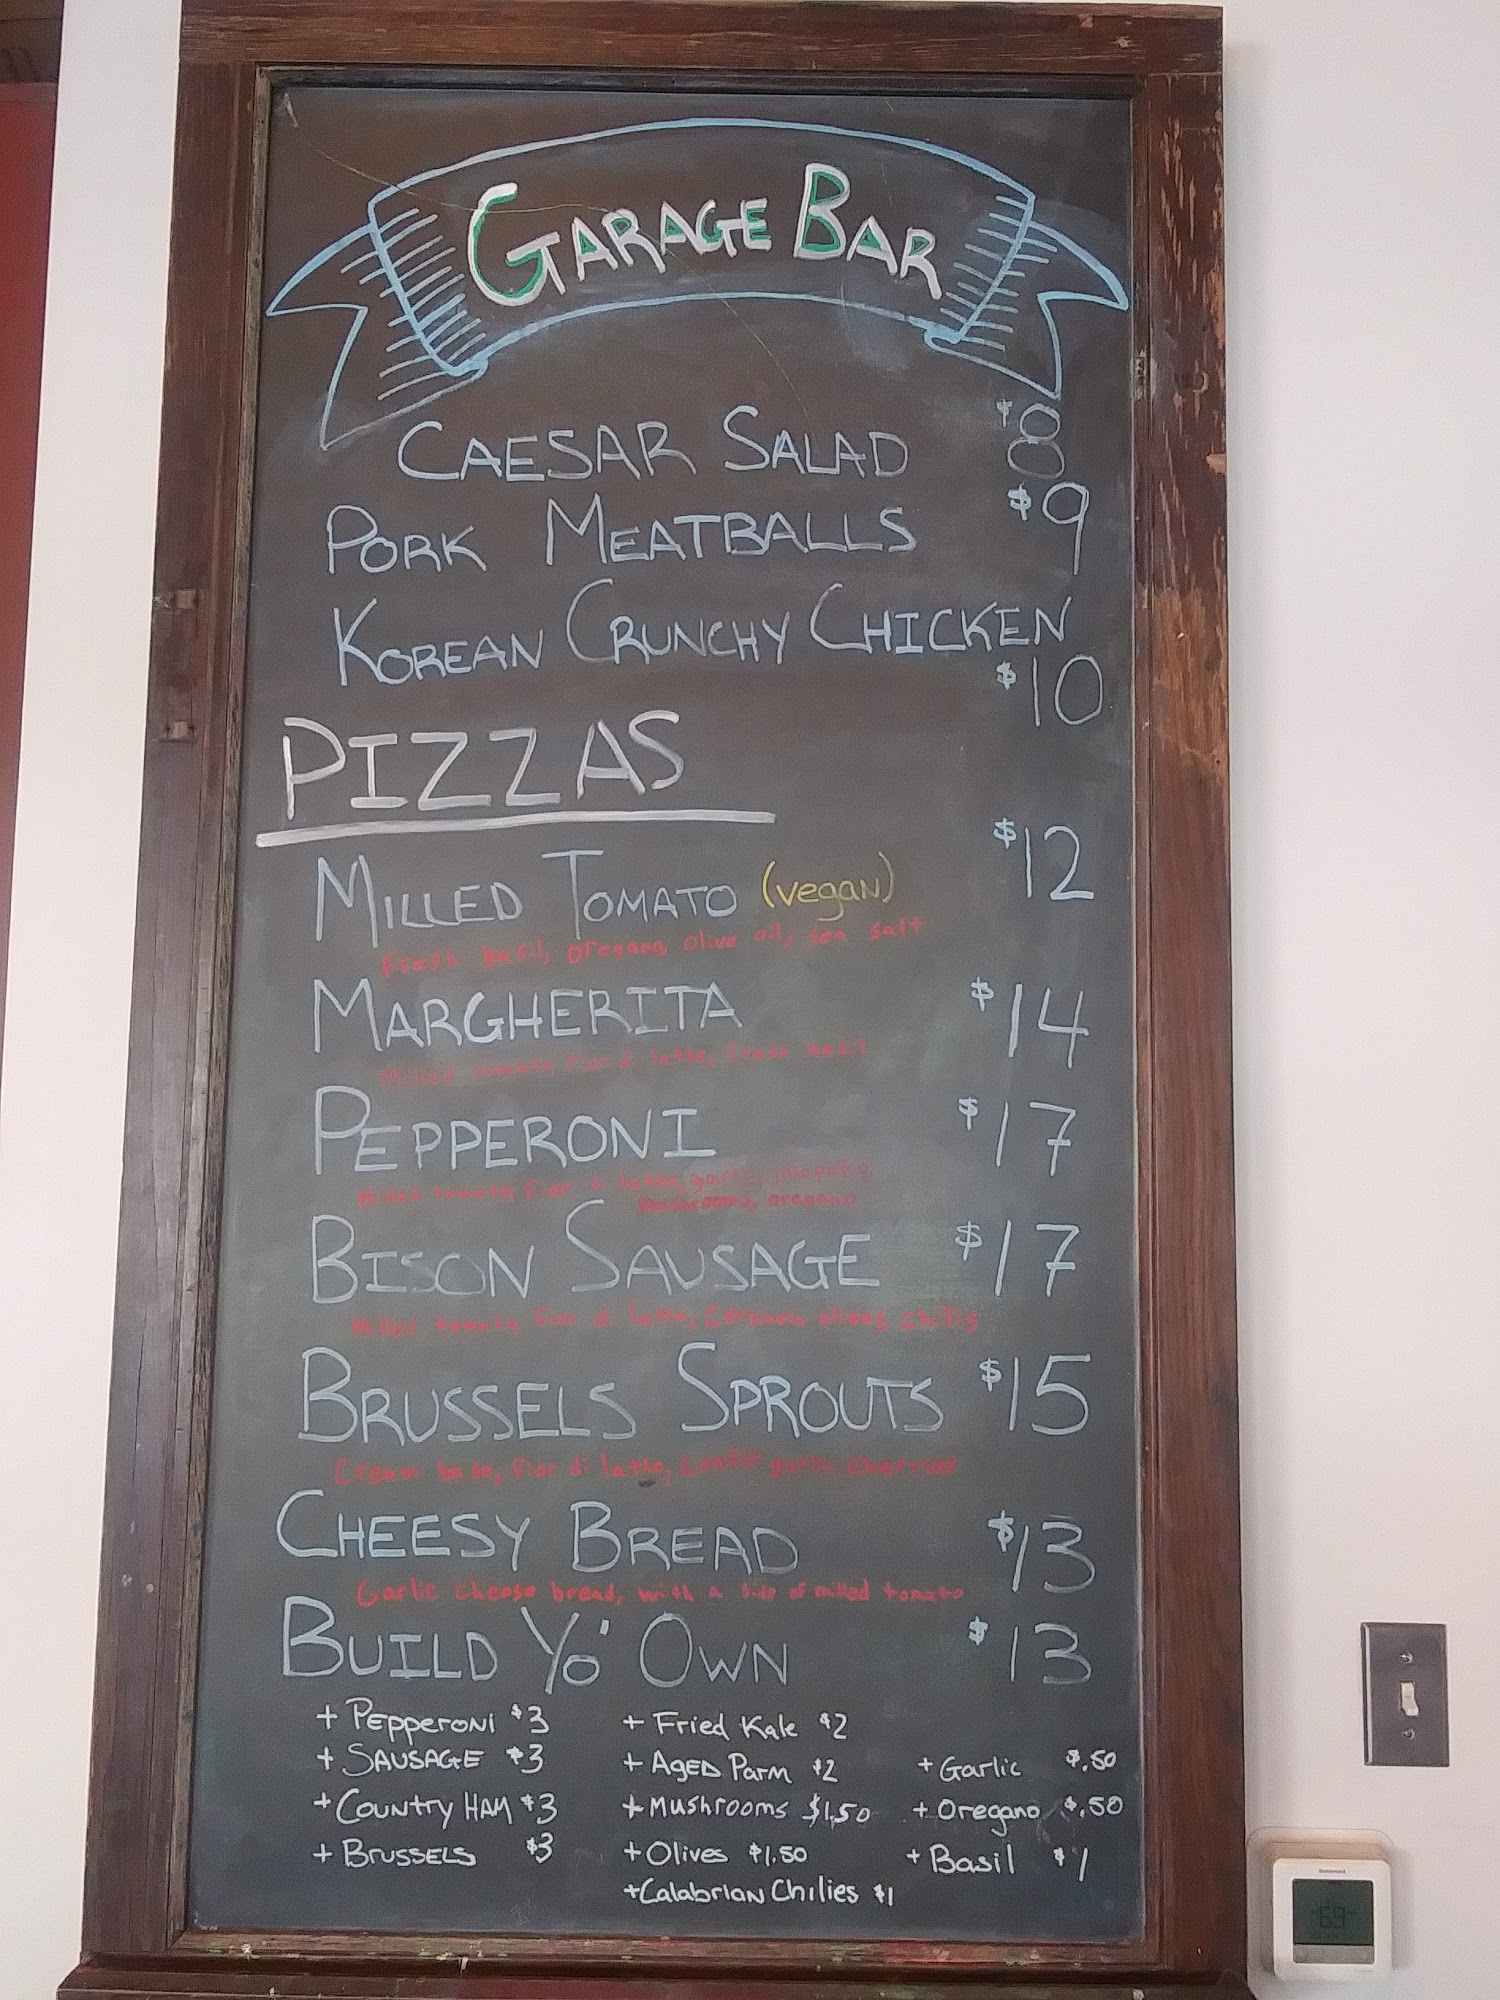 GARAGE BAR
CAESAR SALAD $8
PORK MEATBALLS $9
KOREAN CRUNCHY CHICKEN
$10
PIZZAS
MILLED TOMATO (vegan) $12
Fresh basil, oregano, olive oil, sea salt
MARGHERITA $14
Milled tomato, fior di latte, fresh basil
PEPPERONI $17
Milled tomato, fior di latte, garlic, jalapeño,
mushrooms, oregano
BISON SAUSAGE $17
Milled tomato, fior di latte, Cerignola olives, chilis
BRUSSELS SPROUTS $15
Cream base, fior di latte, confit garlic, cherries
CHEESY BREAD $13
Garlic cheese bread, with a side of milled tomato
BUILD YO' OWN $13
+ PEPPERONI $3 + Fried Kale $2
+ SAUSAGE $3 + AGED Parm $2 + Garlic $.50
+ COUNTRY HAM $3 + Mushrooms $1.50 + Oregano $.50
+ BRUSSELS $3 + Olives $1.50 + Basil $1
+ Calabrian Chilies $1
Honeywell
69